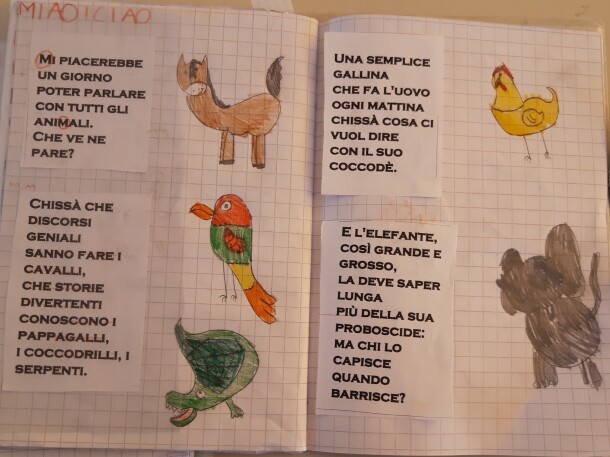 MIAO! CIAO
MI PIACEREBBE
UN GIORNO
POTER PARLARE
CON TUTTI GLI
ANIMALI.
CHE VE NE
PARE?
CHISSÀ CHE
DISCORSI
GENIALI
SANNO FARE I
CAVALLI,
CHE STORIE
DIVERTENTI
CONOSCONO I
PAPPAGALLI,
I COCCODRILLI, I
SERPENTI.
UNA SEMPLICE
GALLINA
CHE FA L'UOVO
OGNI MATTINA
CHISSÀ COSA CI
VUOL DIRE
CON IL SUO
COCCODÈ.
E L'ELEFANTE,
COSÌ GRANDE E
GROSSO,
LA DEVE SAPER
LUNGA
PIÙ DELLA SUA
PROBOSCIDE:
MA CHI LO
CAPISCE
QUANDO
BARRISCE?